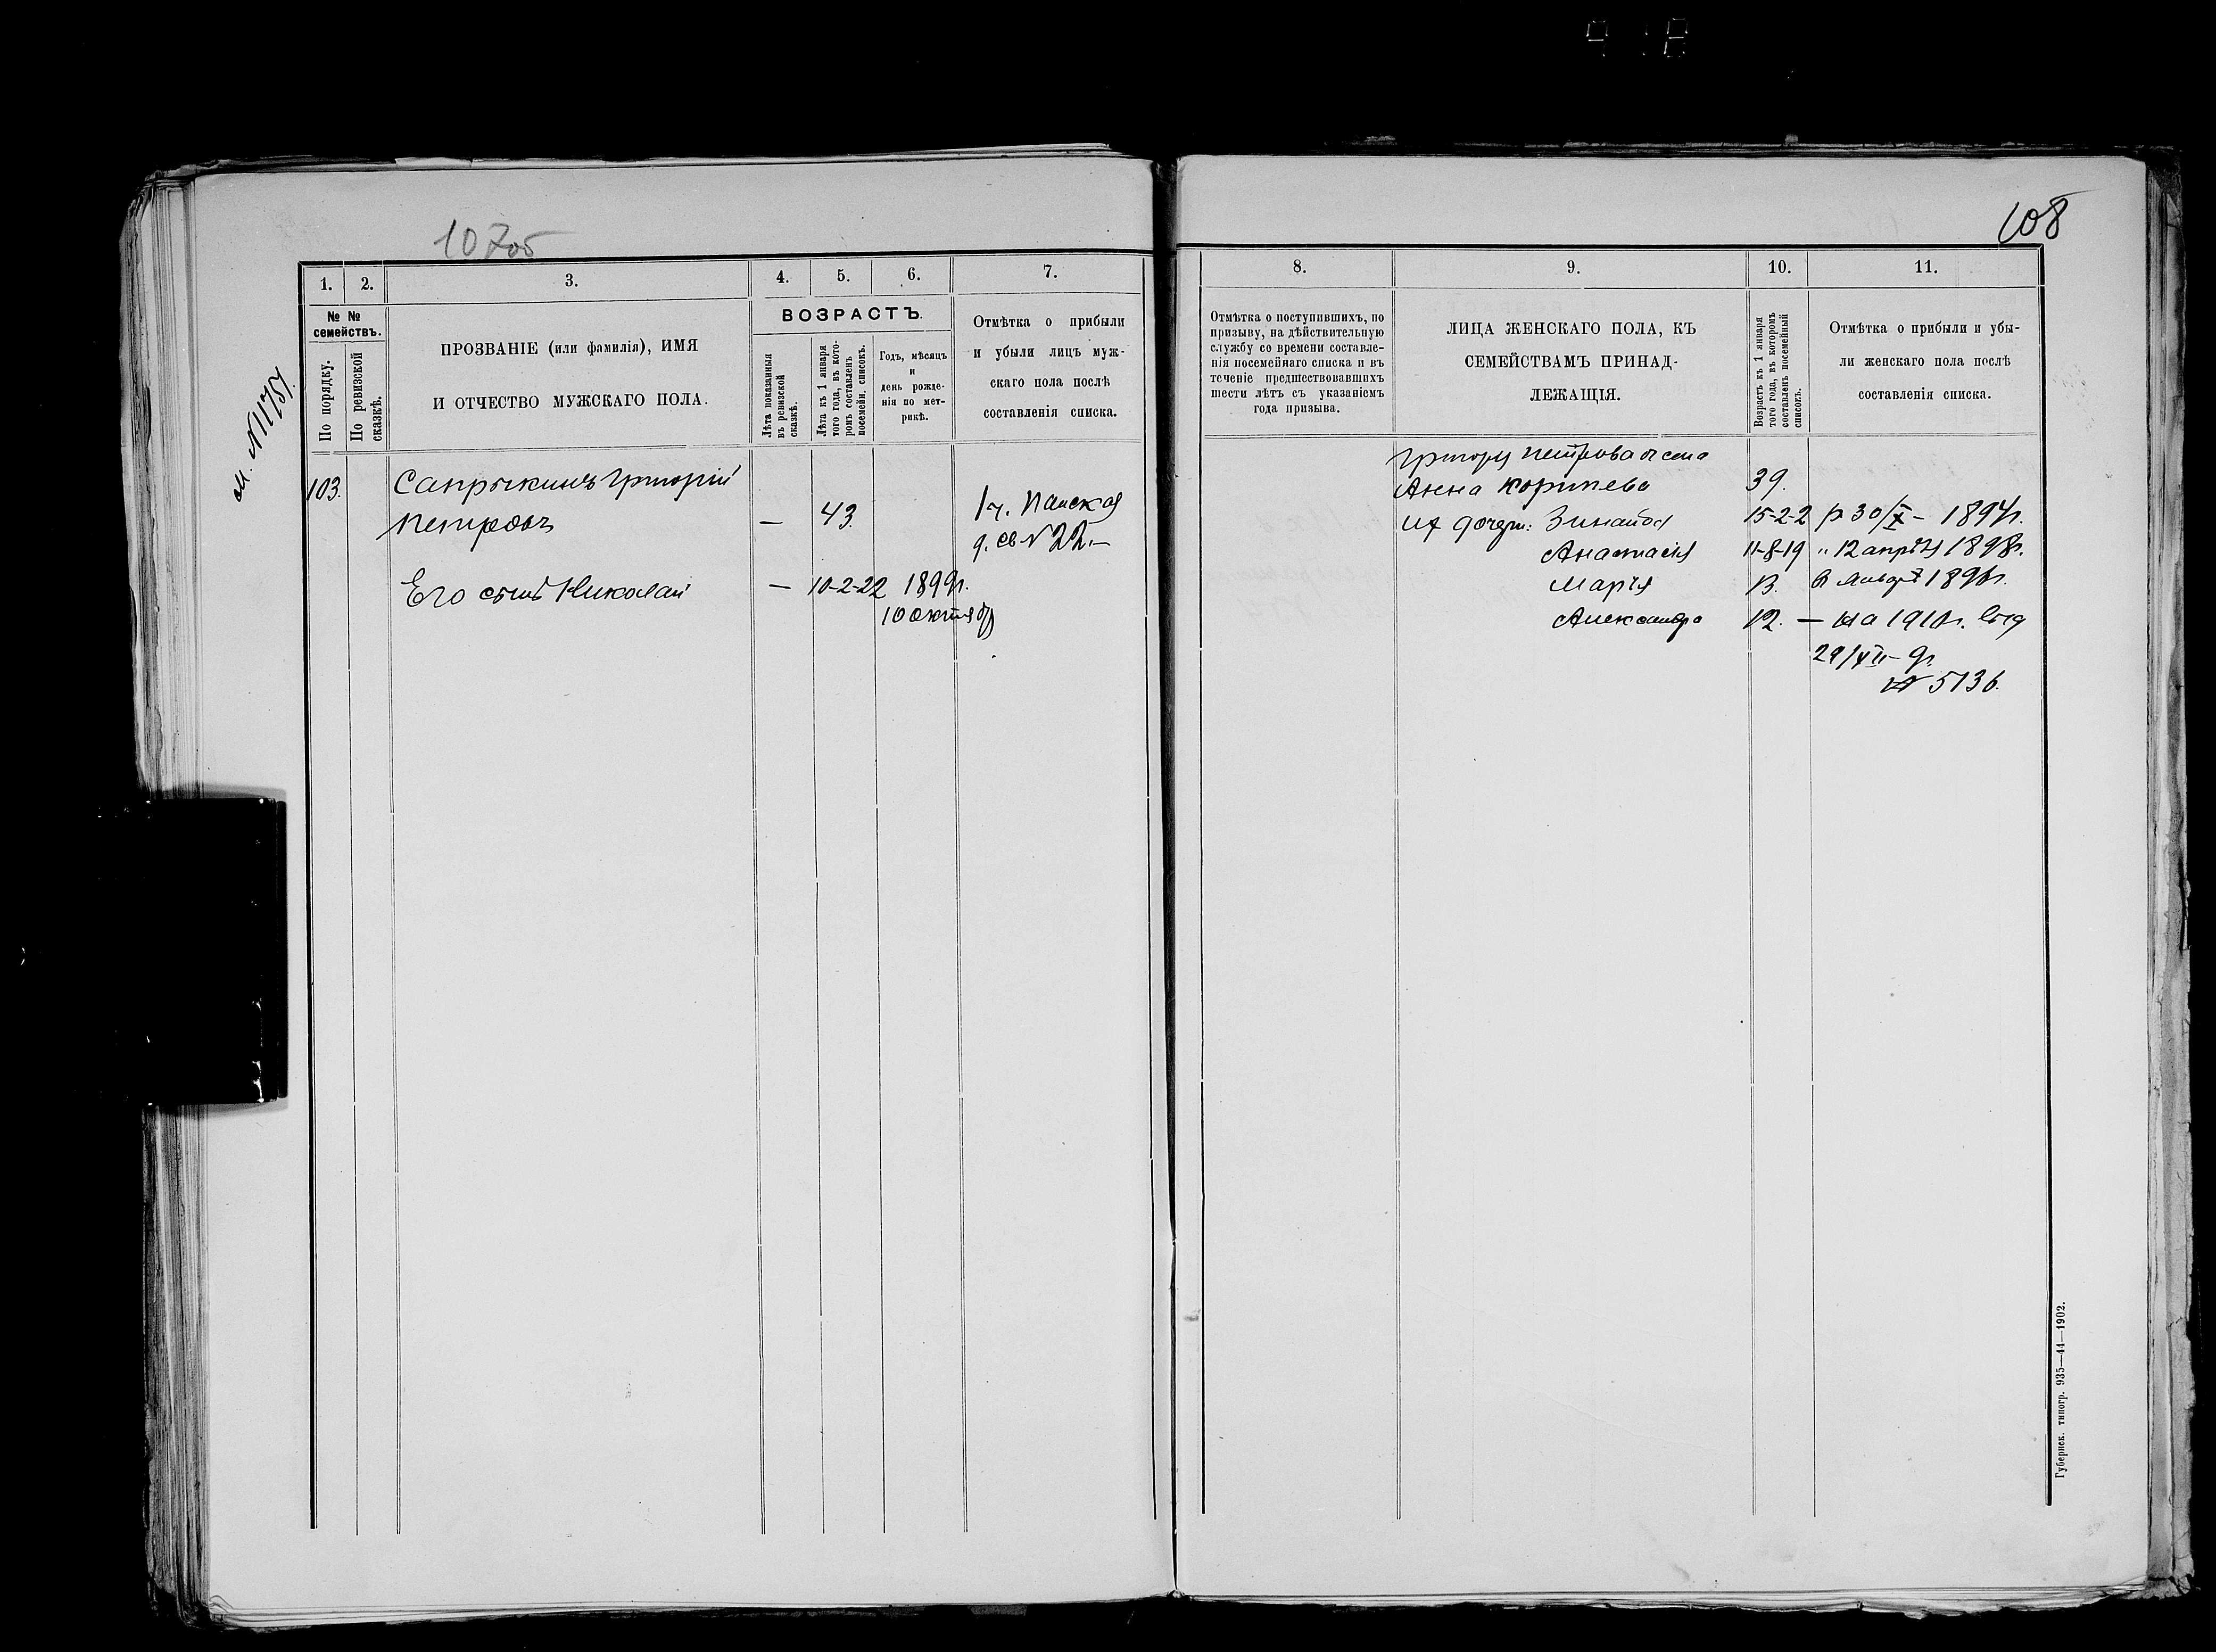 107об
108
1.
2.
3.
4.
5.
6.
7.
№ №
семействъ.
По порядку.
По ревизской
сказкѣ.
ПРОЗВАНІЕ (или фамилія), ИМЯ
И ОТЧЕСТВО МУЖСКАГО ПОЛА.
ВОЗРАСТЪ.
Лѣта показанныя
въ ревизской
сказкѣ.
Лѣта къ 1 января
того года, въ кото-
ромъ составленъ
посемейн. списокъ.
Годъ, мѣсяцъ
и
день рожде-
нія по мет-
рикѣ.
Отмѣтка о прибыли
и убыли лицъ муж-
скаго пола послѣ
составленія списка.
103.
Сапрыкинъ Григорій
Петровъ
— 43.
1 ч. Панская
д. № 22.—
Его сынъ Николай
— 10-2-22 1899г.
10 октября
8.
9.
10.
11.
Отмѣтка о поступившихъ, по
призыву, на дѣйствительную
службу со времени составле-
нія посемейнаго списка и въ
теченіе предшествовавшихъ
шести лѣтъ съ указаніемъ
года призыва.
ЛИЦА ЖЕНСКАГО ПОЛА, КЪ
СЕМЕЙСТВАМЪ ПРИНАД-
ЛЕЖАЩІЯ.
Возрастъ къ 1 января
того года, въ которомъ
составленъ посемейный
списокъ.
Отмѣтка о прибыли и убы-
ли женскаго пола послѣ
составленія списка.
Григорія Петрова жена
Анна 39.
Их дочери: Зинаида 15-2-2 р 30/X — 1894г.
Анастасія 11-8-19 " 12 апрѣля 1898г.
Марія 13. января 1896г.
Александра 12. — на 1910г.
№ 5136.
Губернск. типогр. 935—44—1902.